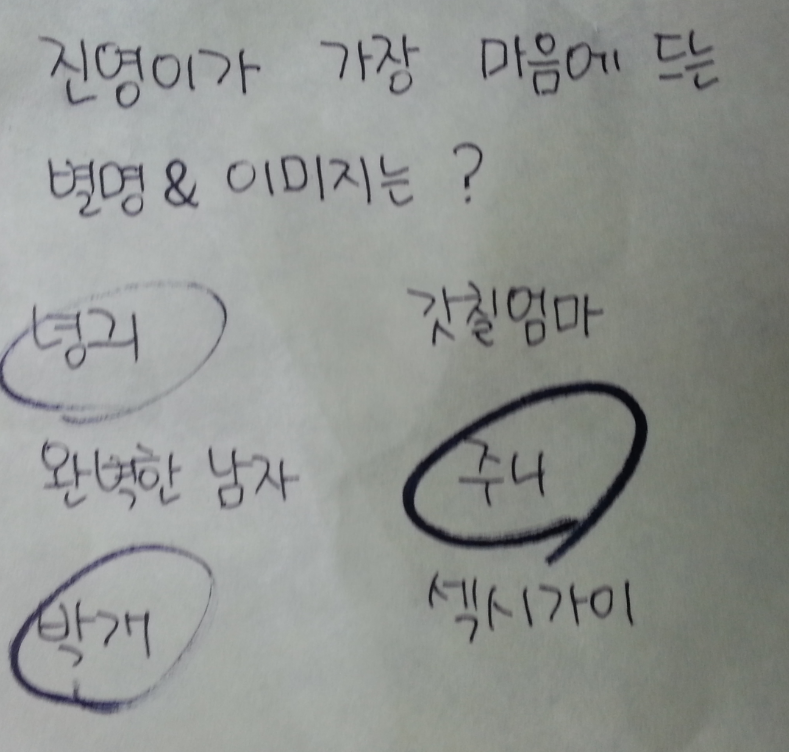 진영이가 가장 마음에 드는
별명 & 이미지는 ?
녕괴 갓칠엄마
완벽한 남자 주니
박개 섹시가이